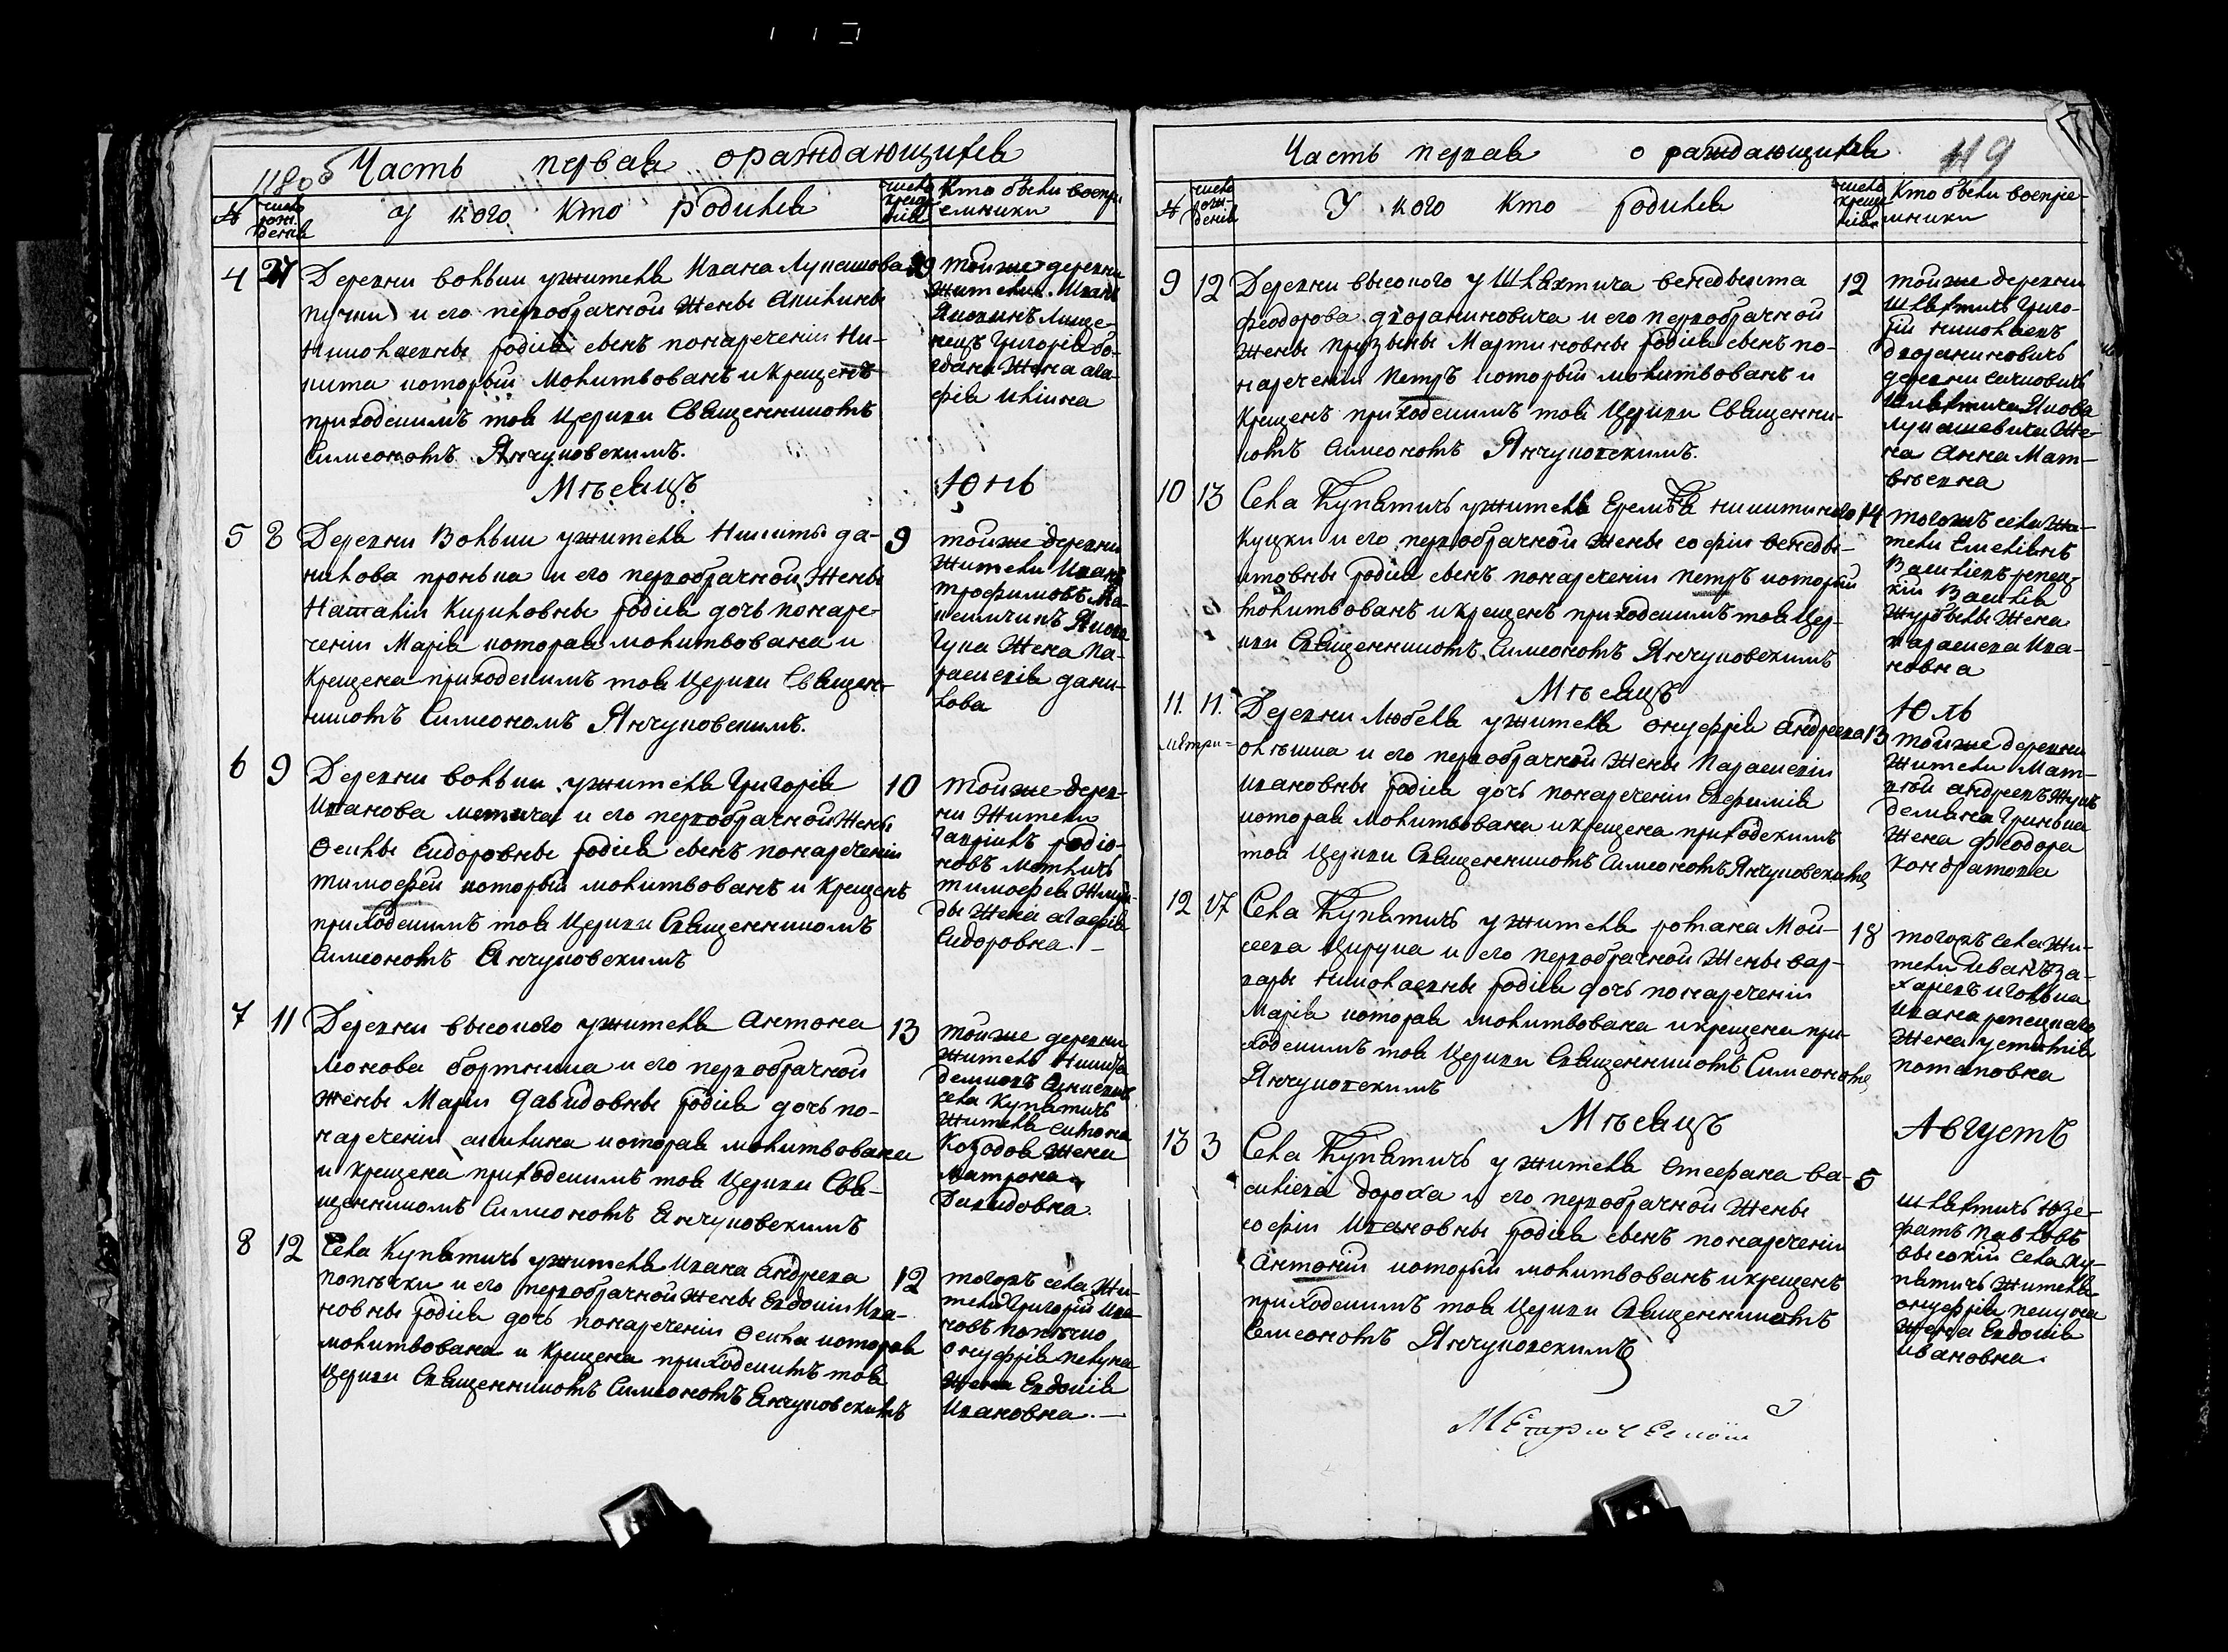 118об Часть первая ораждающихся
№
число рож. денія
У кого Кто родился
число креще нія
Кто были воспрі
емники
4 27 Деревни Вольки ужителя Ивана Лукашова
пучки и его первобрачной жены Акилины
Николаевны родися сынъ понареченіи Ни-
кита который молитвованъ и крещенъ
приходскимъ тоя Церкви Священникомъ
Симеономъ Янчуковскимъ.
29 тойже деревни
жители Иванъ
Григорія бо-
гдана Жена ага-
фія
Мѣсяцъ Юнь
5 8 Деревни Вольки ужителя Никиты да-
нилова пронька и его первобрачной Жены
Наталіи Кириловны родися дочь понаре-
ченіи Марія которая молитвована и
Крещена приходскимъ тоя Церкви Священ-
никомъ Симеономъ Янчуковскимъ.
9 тойже деревни
Жители Иванъ
трофимовъ
Якова
Гука Жена Па-
раскевія дани-
лова
6 9 Деревни Вольки ужителя Григорія
Иванова и его первобрачной Жены
Феклы Сидоровны родися сынъ понареченіи
тимофей который молитвованъ и крещенъ
приходскимъ тоя Церкви Священникомъ
Симеономъ Янчуковскимъ
10 тойже дерев-
ни Жители
Гавріилъ родіо-
новъ
тимофея
Жена агафія
Сидоровна.
7 11 Деревни высокого ужителя Антона
Леонова бортника и его первобрачной
жены Маріи Давидовны родися дочь по-
нареченіи акилина которая молитвована
и крещена приходскимъ тоя Церкви Свя-
щенникомъ Симеономъ Янчуковскимъ
13 тойже деревни
житель
села Купятичъ
Жителя Симона
Козодоя Жена
матрона
Давидовна.
8 12 Села Купятичъ ужителя Ивана Андреева
попѣчки и его первобрачной Жены Евдокіи Ива-
новны родися дочь понареченіи Фекла которая
молитвована и Крещена приходскимъ тоя
Церкви Священникомъ Симеономъ Янчуковскимъ
12 тогожъ села Жи-
тели Григорій Ива-
новъ попѣчко
онуфрія пекуна
Жена Евдокія
Ивановна.
Часть первая о раждающихся 119
№
число рож- денія
У кого Кто родился
число креще нія
Кто были воспріе-
мники
9 12 Деревни высокого у Шляхтича бенедыкта
феодорова двораниновича и его первобрачной
Жены прузыны Мартиновны родися сынъ по-
нареченіи Петръ который молитвованъ и
Крещенъ приходскимъ тоя Церкви Священни-
комъ Симеономъ Янчуковскимъ.
12 тойже деревни
Шляхтичъ Григо-
рій николаевъ
двораниновичъ
деревни
шляхтича Якова
лукашевича Же-
на Анна Мат-
вѣевна
10 13 Села Купятичъ ужителя Еремѣя никитинаго
Куцки и его первобрачной Жены софіи бенеды-
ктовны родися сынъ понареченіи петръ который
молитвованъ и крещенъ приходскимъ тоя Цер-
кви Священникомъ Симеономъ Янчуковскимъ
14 тогожъ села Жи-
тели Емеліянъ
Василіевъ репец-
кій Василія
Жена
параскева Ива-
новна
Мѣсяцъ Юль
11. 11. Деревни Любеля ужителя онуфрія Андреева
и его первобрачной Жены Параскевіи
ивановны родися дочь понареченіи Евфимія
которая молитвована и крещена приходскимъ
тоя Церкви Священникомъ Симеономъ Янчуковскимъ
13 тойже деревни
Жители Мат-
вѣй андреевъ Жукъ
демяна Гринька
Жена феодора
кондратова
12 17 Села Купятичъ ужителя романа Мои-
сеева Цирука и его первобрачной Жены вар-
вары николаевны родися дочь понареченіи
Марія которая молитвована и крещена при-
ходскимъ тоя Церкви Священникомъ Симеономъ
Янчуковскимъ
18 тогожъ села Жи-
тели иванъ за-
харевъ
ивана репецкаго
Жена устинія
потаповна
Мѣсяцъ Августъ
13 3 Села Купятичъ ужителя Стефана ва-
силіева и его первобрачной Жены
софіи Ивановны родися сынъ понареченіи
Антоній который молитвованъ и крещенъ
приходскимъ тоя Церкви Священникомъ
Семеономъ Янчуковскимъ
5 шляхтичъ юзе-
фатъ павловъ
высокій села Ку-
пятичъ Жителя
онуфрія пекуна
Жена Евдокія
ивановна.